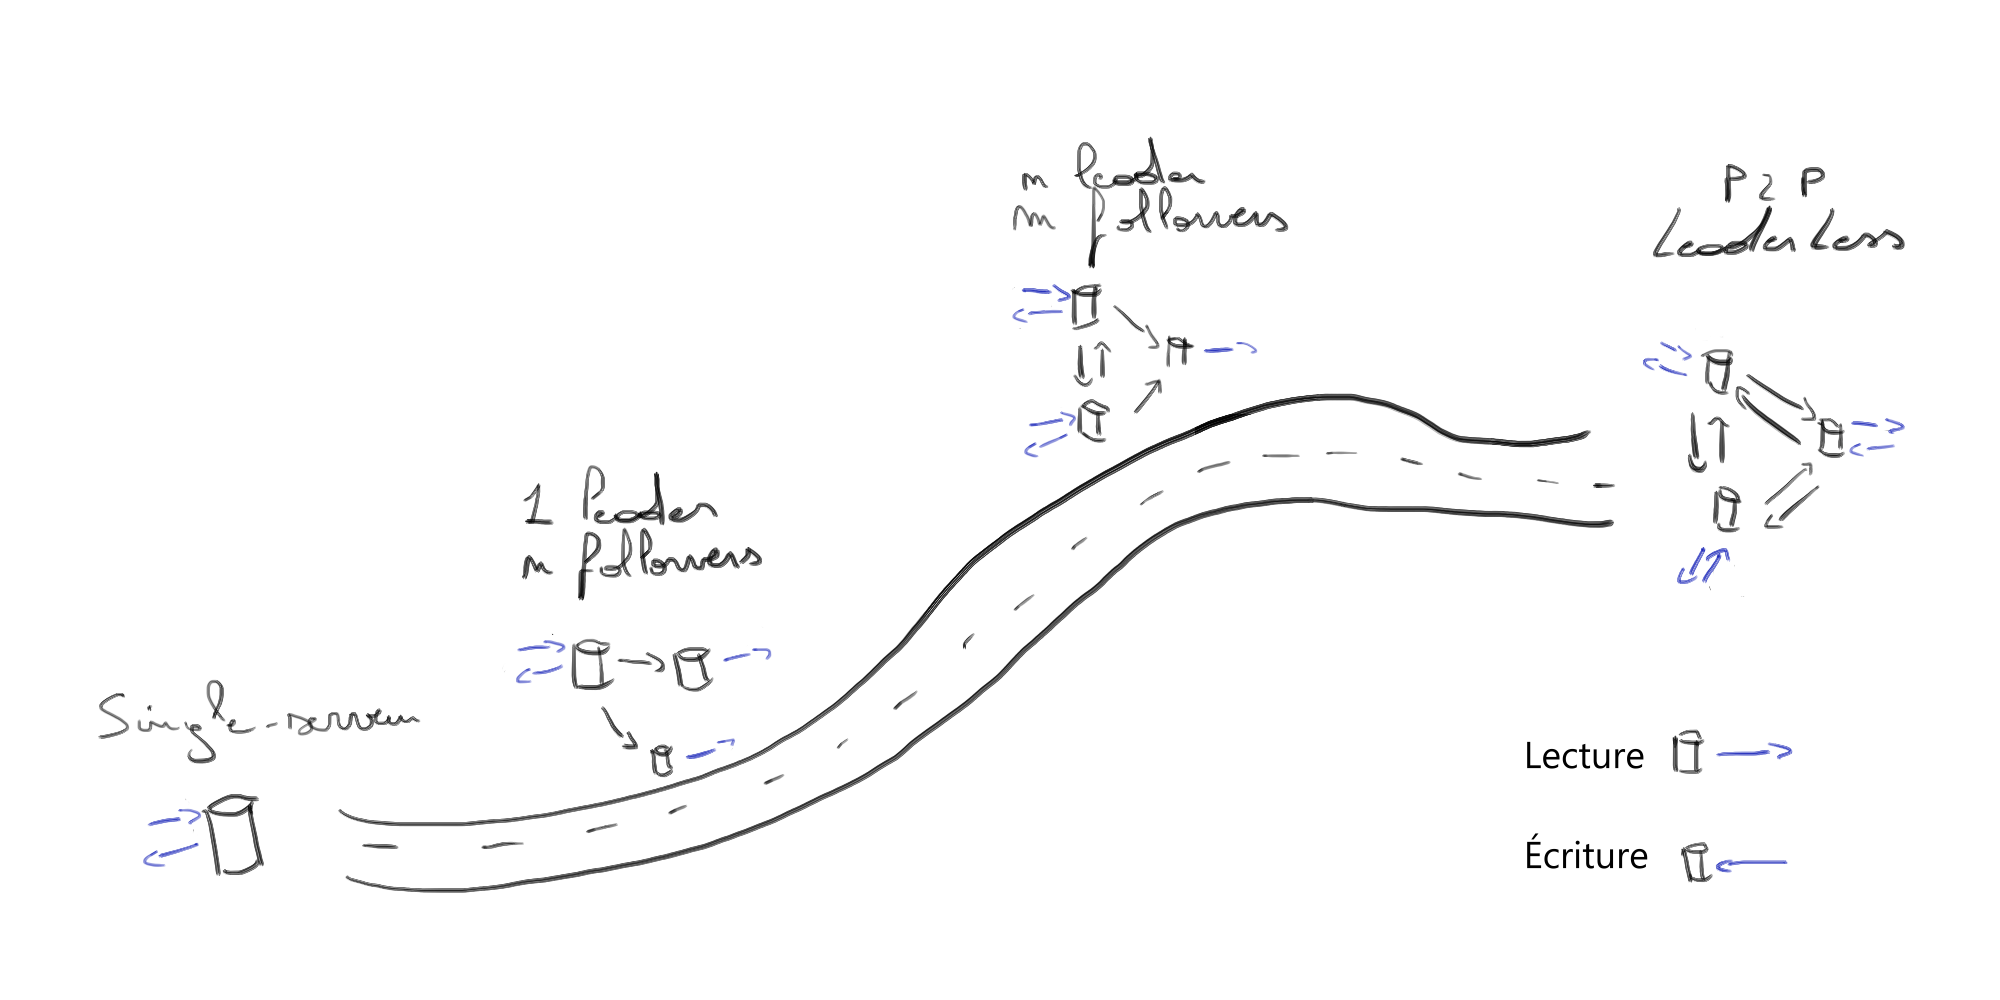 Single-serveur
1 Leader
n followers
n leader
m followers
P2P
Leaderless
Lecture
Écriture